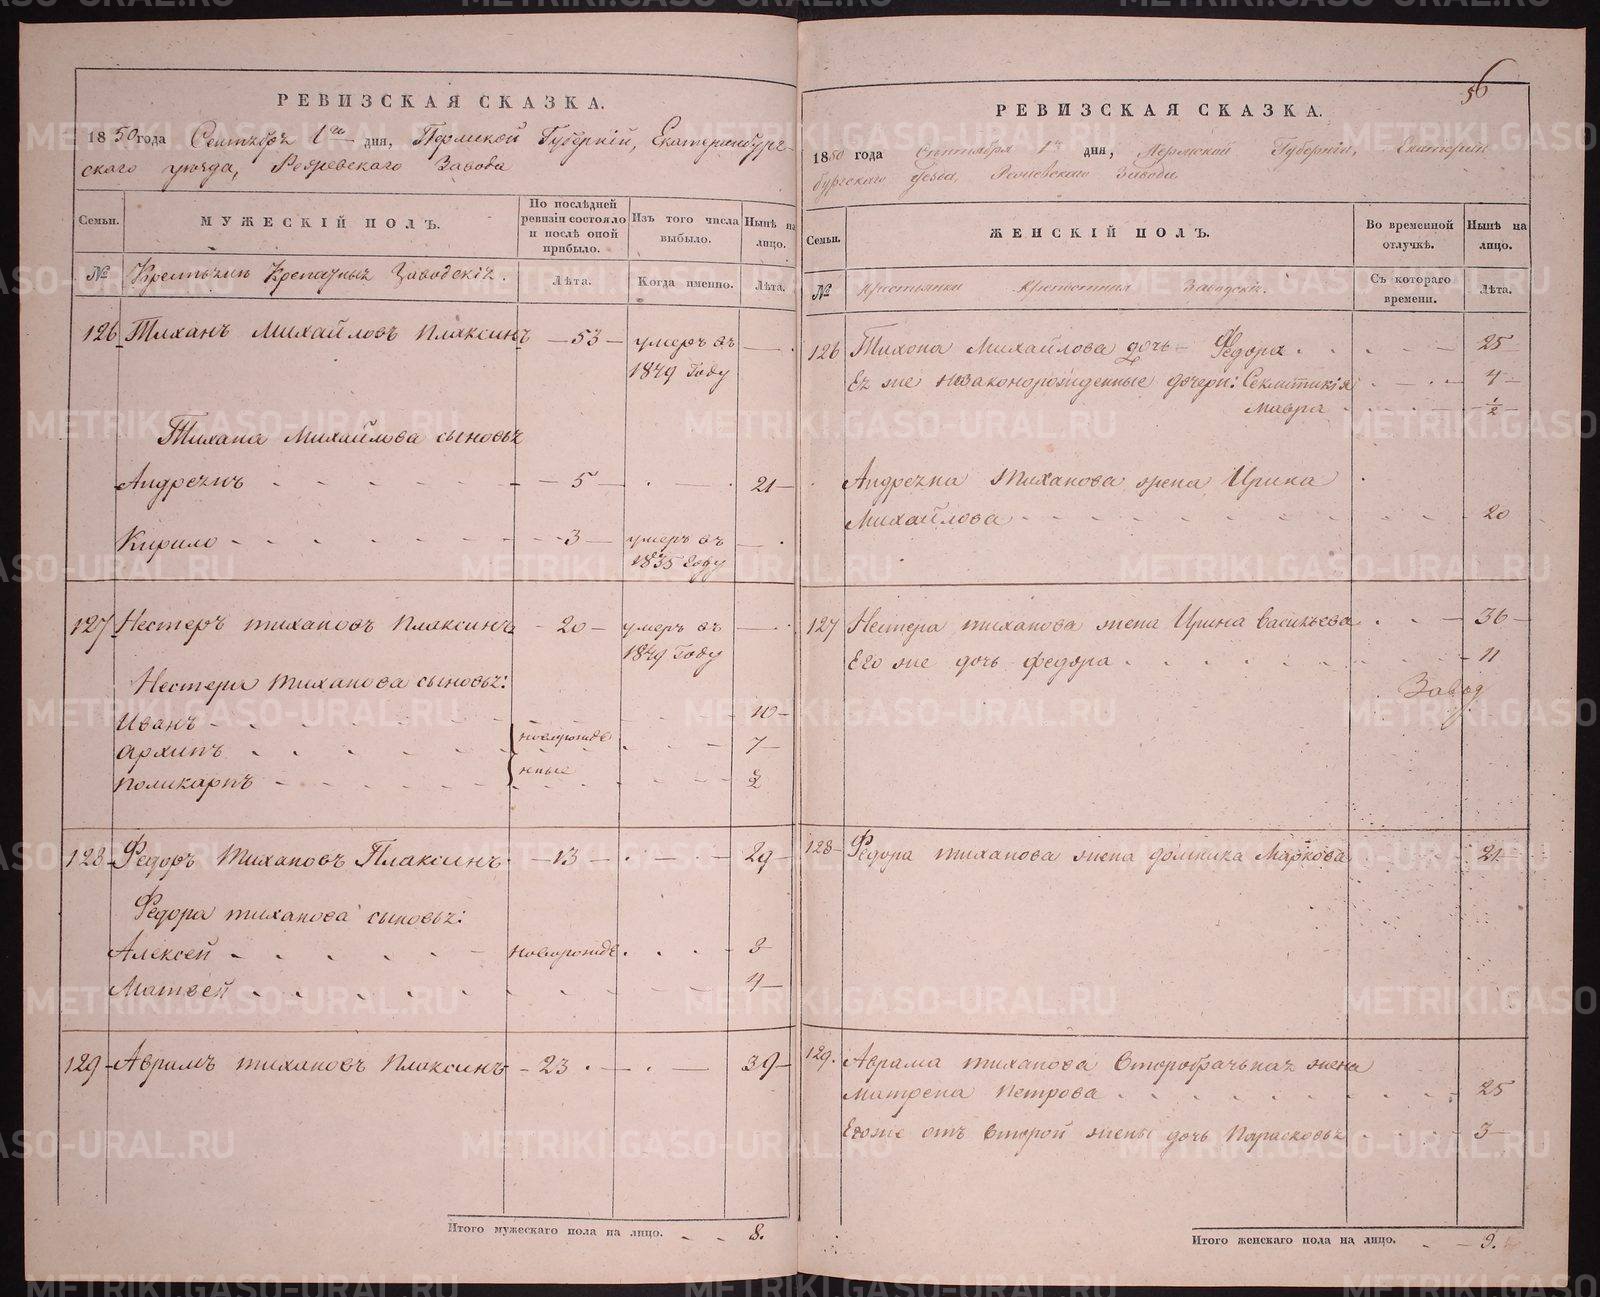 56
РЕВИЗСКАЯ СКАЗКА.
1850 года Сентябрь 1го дня, Пермской Губерніи, Екатеринбург-
скаго уѣзда, Режевскаго Завода
Семьи.
МУЖЕСКІЙ ПОЛЪ.
По послѣдней ревизіи состояло и послѣ оной прибыло.
Изъ того числа выбыло.
Нынѣ на лицо.
№
Заводскіх.
Лѣта.
Когда именно.
Лѣта.
126 Тиханъ Михайловъ Плаксинъ — 53 — умеръ въ
1849 Году
Тихана Михайлова сыновья
Андреянъ — 5 — 21
Кирило — 3 — умеръ въ
1835 Году
127 Нестеръ тихановъ Плаксинъ — 20 — умеръ въ
1849 Году
Нестера тиханова сыновья:
Иванъ 10
архипъ новорожде 7
поликарпъ нные
128 Федоръ Тихановъ Плаксинъ — 13 — 29
Федора тиханова сыновья:
Алексей новорожде 3
Матвей
129 Аврамъ тихановъ Плаксинъ — 23 — 39
Итого мужескаго пола на лицо. 8.
РЕВИЗСКАЯ СКАЗКА.
1850 года Сентября 1го дня, Пермской Губерніи, Екатерин
бургскаго уезда, Режевскаго Завода
Семьи.
ЖЕНСКІЙ ПОЛЪ.
Во временной отлучкѣ.
Нынѣ на лицо.
№
Крестьянки Крепостныя Заводскія.
Съ котораго времени.
Лѣта.
126 Тихона Михайлова дочь Федора 25
Ея же незаконорожденные дочери: Секлитикія 4
Мавра ½
Андреяна Тиханова жена Ирина
Михайлова 20
127 Нестера тиханова жена Ирина васильева 36
Его же дочь федора 11
Завод
128 Федора тиханова жена домника Маркова 21
129. Аврама тиханова второбрачьная жена
матрена петрова 25
Егоже отъ второй жены дочь Парасковья 3
Итого женскаго пола на лицо. 9.
METRIKI.GASO-URAL.RU